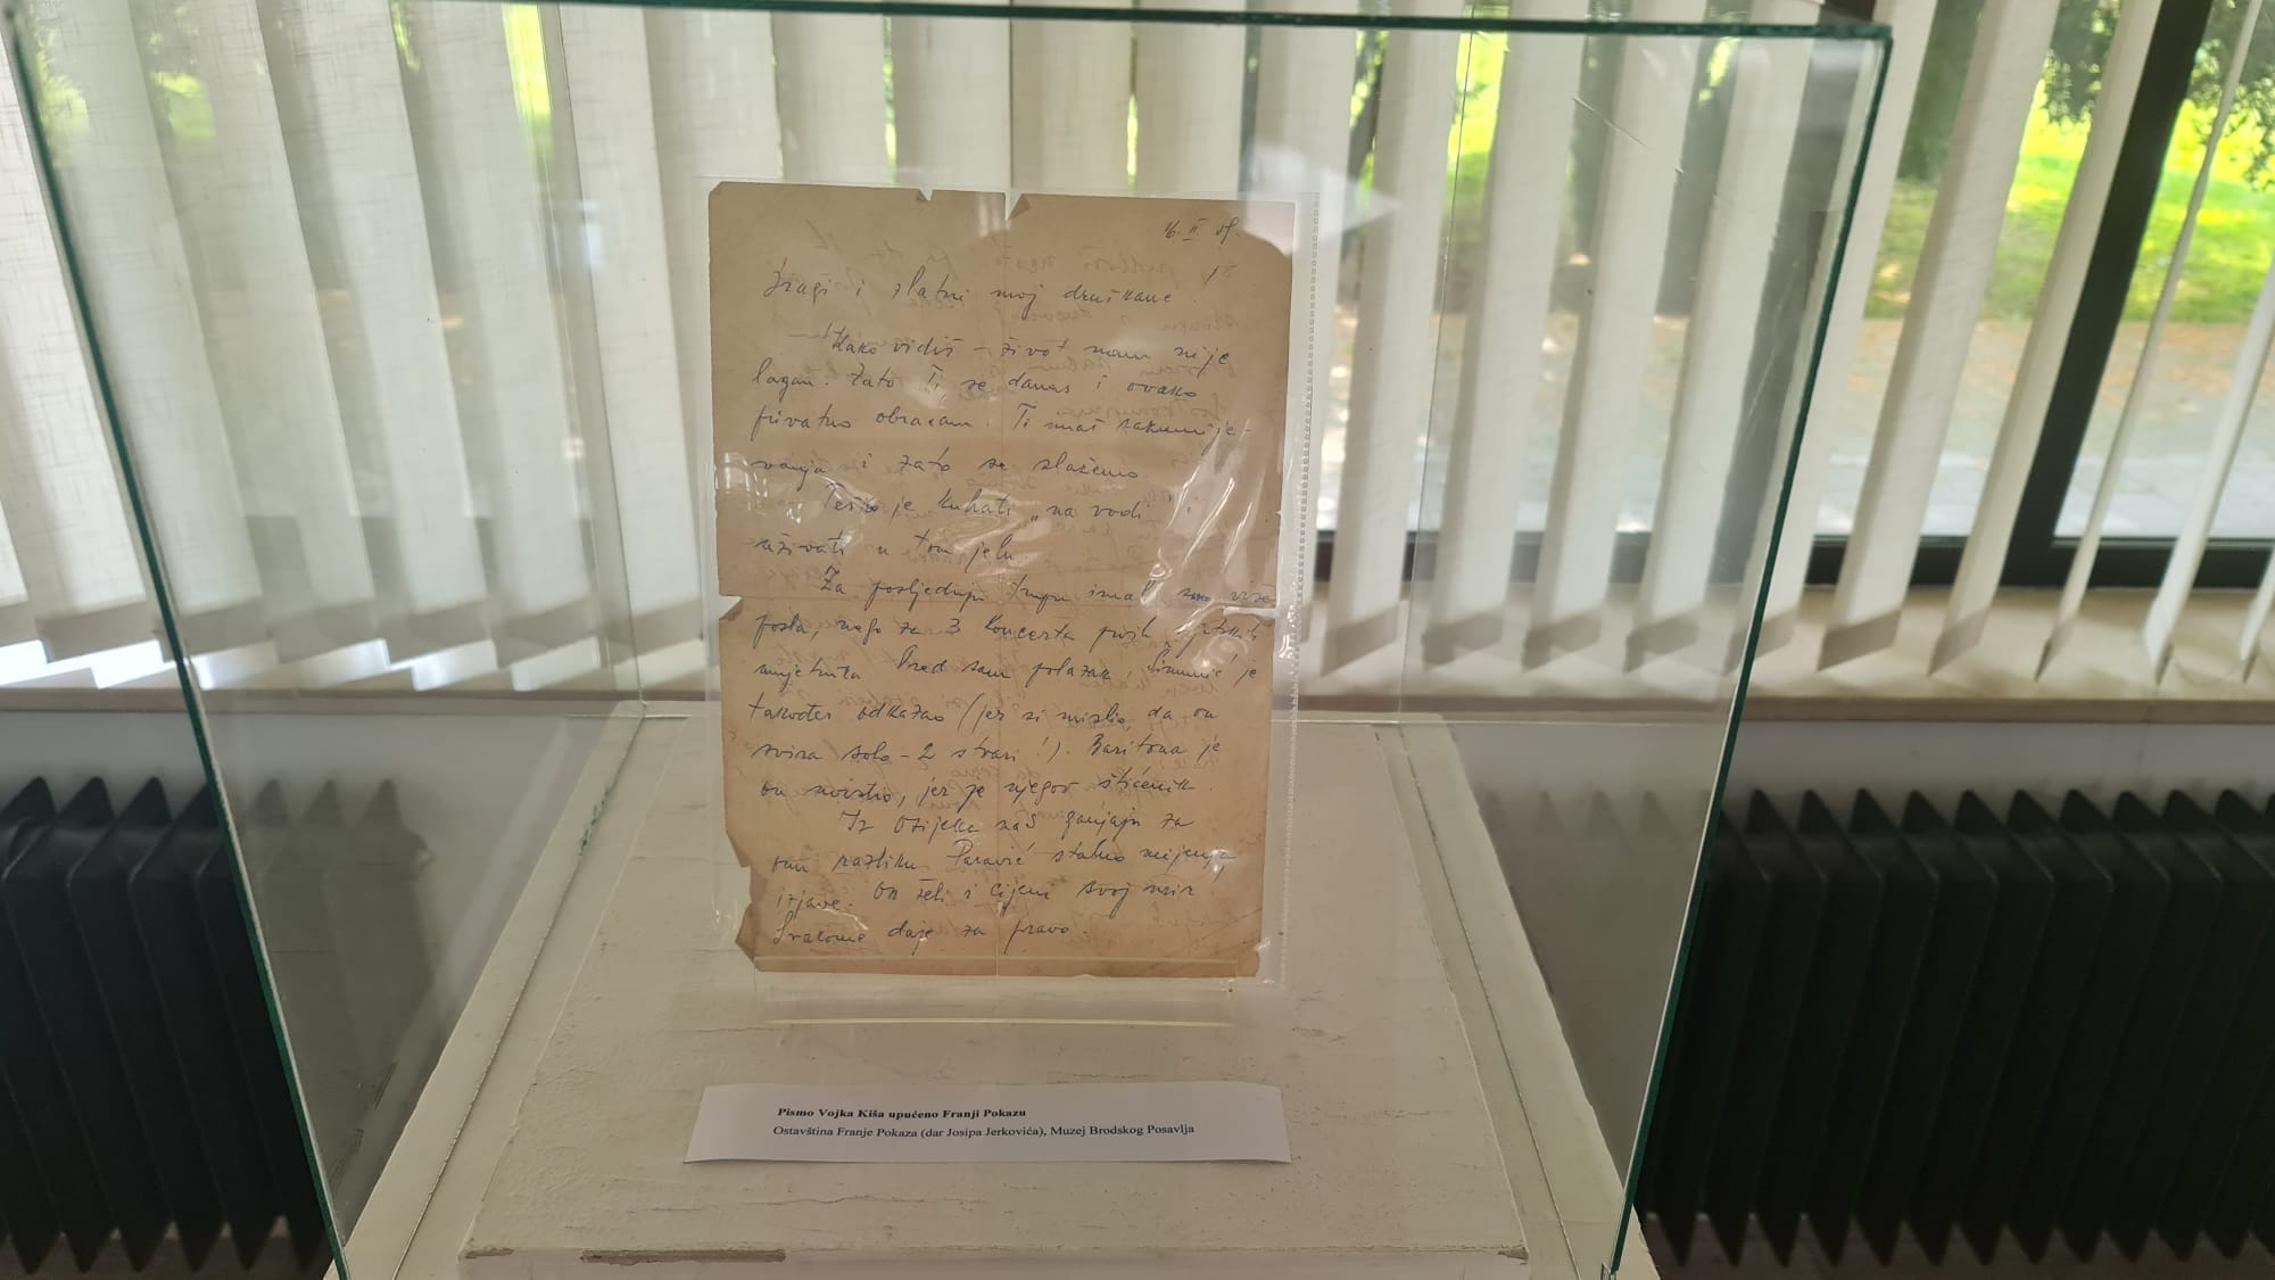 16. II. 59.
Dragi i zlatni moj druškane!
Kako vidiš – život nam nije
lagan. Zato Ti se danas i ovako
privatno obraćam. Ti imaš razumije-
vanja i zato se slažemo.
Teško je kuhati „na vodi" i
uživati u tom jelu.
Za posljednju imal smo više
posla, nego za 3 koncerta svjetskih
umjetnika. Pred sam polazak, Šimunić je
također odkazao (jer si mislio, da on
svira solo – 2 stvari!). Baritona je
on uvrstio, jer je njegov štićenik.
Iz Osijeka nas ganjaju za
onu razliku. Paravić stalno mijenja
izjave. On želi i cijeni svoj mir.
Svakome daje za pravo.
Pismo Vojka Kiša upućeno Franji Pokazu
Ostavština Franje Pokaza (dar Josipa Jerkovića), Muzej Brodskog Posavlja